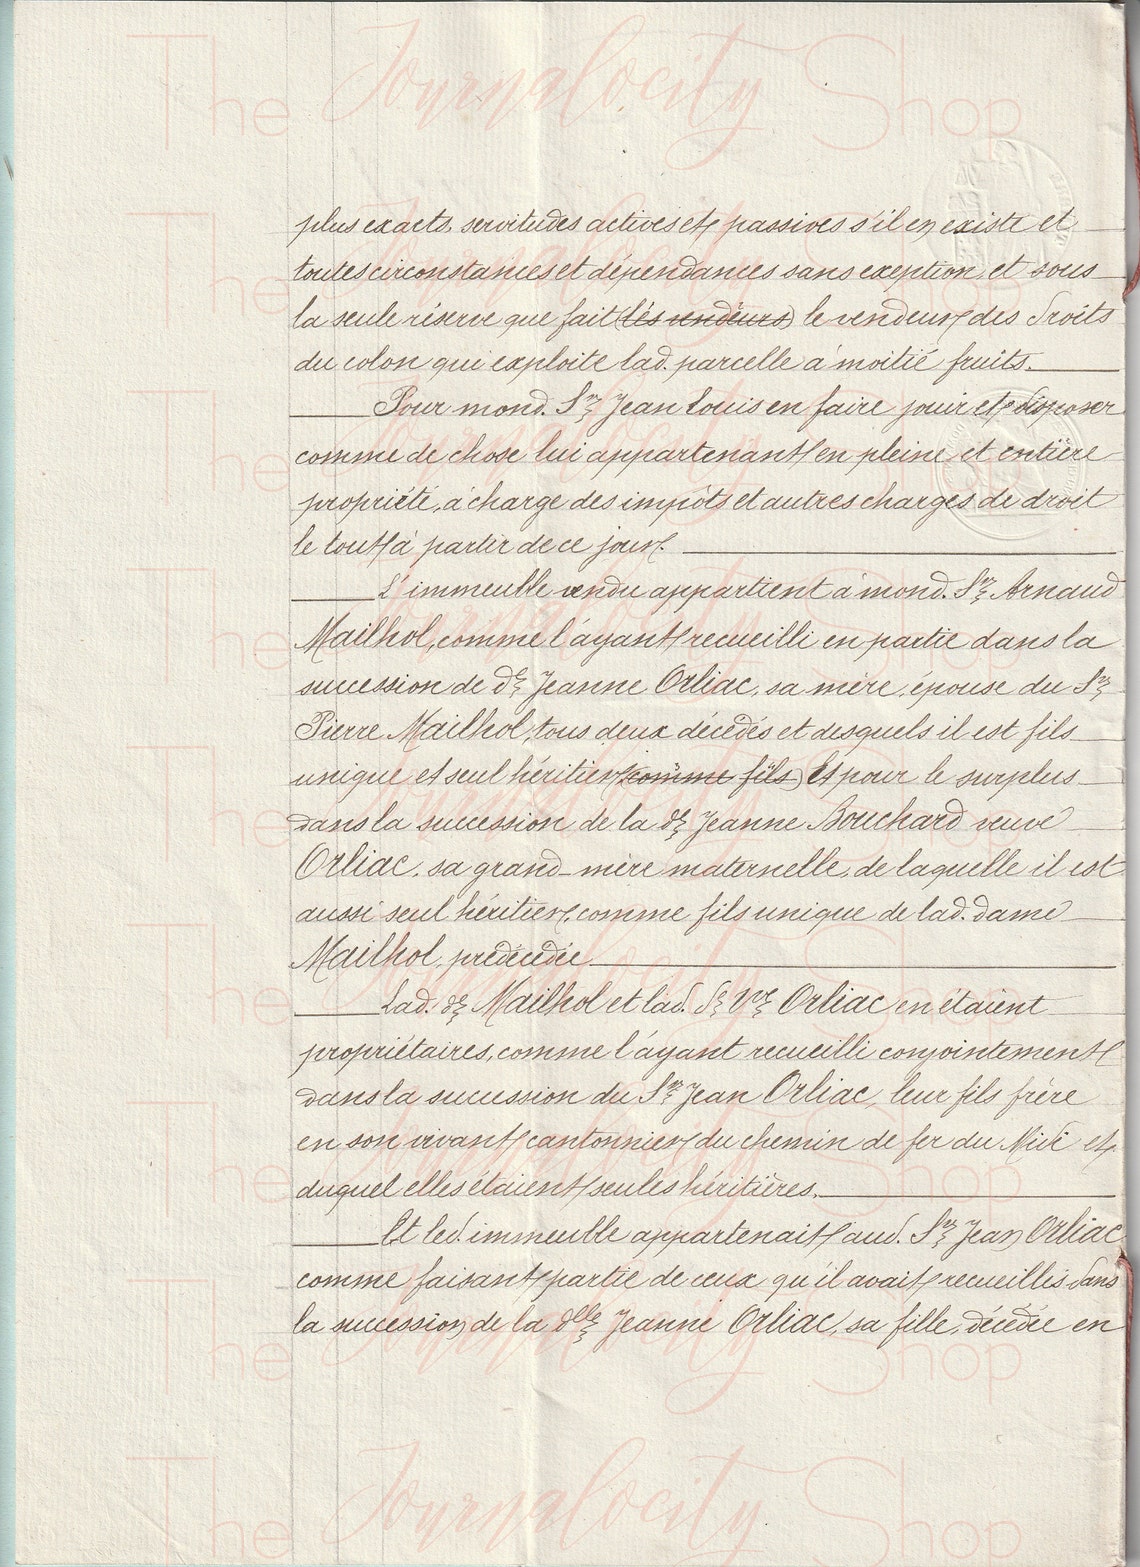 plus exacts, servitudes actives et passives s'il en existe et
toutes circonstances et dépendances sans exeption, et sous
la seule réserve que fait (les vendeurs) le vendeur des droits
du colon qui exploite lad. parcelle à moitié fruits.
Pour mond. Sr Jean Louis en faire jouir et disposer
comme de chose lui appartenant en pleine et entière
propriété, à charge des impôts et autres charges de droit
le tout à partir de ce jour.
L'immeuble vendu appartient à mond. Sr Arnaud
Mailhol, comme l'ayant recueilli en partie dans la
succession de de Jeanne Orliac, sa mère, épouse du Sr
Pierre Mailhol, tous deux décédés et desquels il est fils
unique et seul héritier (comme fils) Et pour le surplus
dans la succession de la de Jeanne Bouchard veuve
Orliac, sa grand-mère maternelle, de laquelle il est
aussi seul héritier, comme fils unique de lad. dame
Mailhol, prédécédée
Lad. de Mailhol et lad. de Vve Orliac en étaient
propriétaires, comme l'ayant recueilli conjointement
dans la succession du Sr Jean Orliac, leur fils frère
en son vivant cantonnier du chemin de fer du Midi et
duquel elles étaient seules héritières.
Et led. immeuble appartenait aud. Sr Jean Orliac
comme faisant partie de ceux qu'il avait recueillis dans
la succession de la dlle Jeanne Orliac, sa fille, décédée en
The Journalocity Shop
The Journalocity Shop
The Journalocity Shop
The Journalocity Shop
The Journalocity Shop
The Journalocity Shop
The Journalocity Shop
The Journalocity Shop
The Journalocity Shop